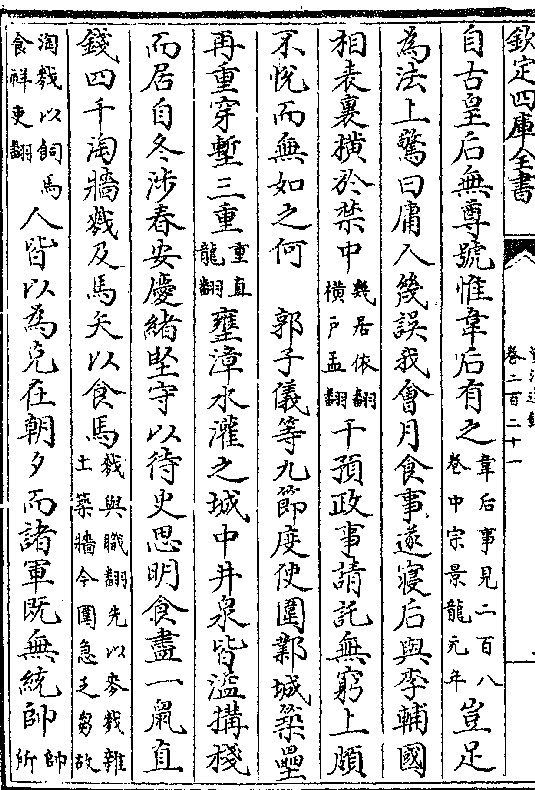 欽定四庫全書
卷二百二十一
自古皇后無尊號惟韋后有之韋后事見二百八卷中宗景龍元年豈足
為法上驚曰庸人幾誤我會月食事遂寢后與李輔國
相表裏橫於禁中幾居依翻橫戶孟翻干預政事請託無窮上頗
不悦而無如之何　郭子儀等九節度使圍鄴城築壘
再重穿塹三重重直龍翻壅漳水灌之城中井泉皆溢搆棧
而居自冬涉春安慶緒堅守以待史思明食盡一鼠直
錢四千淘牆䴬及馬矢以食馬䴬與職翻先以麥䴬雜土築牆今圍急乏芻故
淘䴬以飼馬食祥吏翻人皆以為克在朝夕而諸軍既無統帥帥所